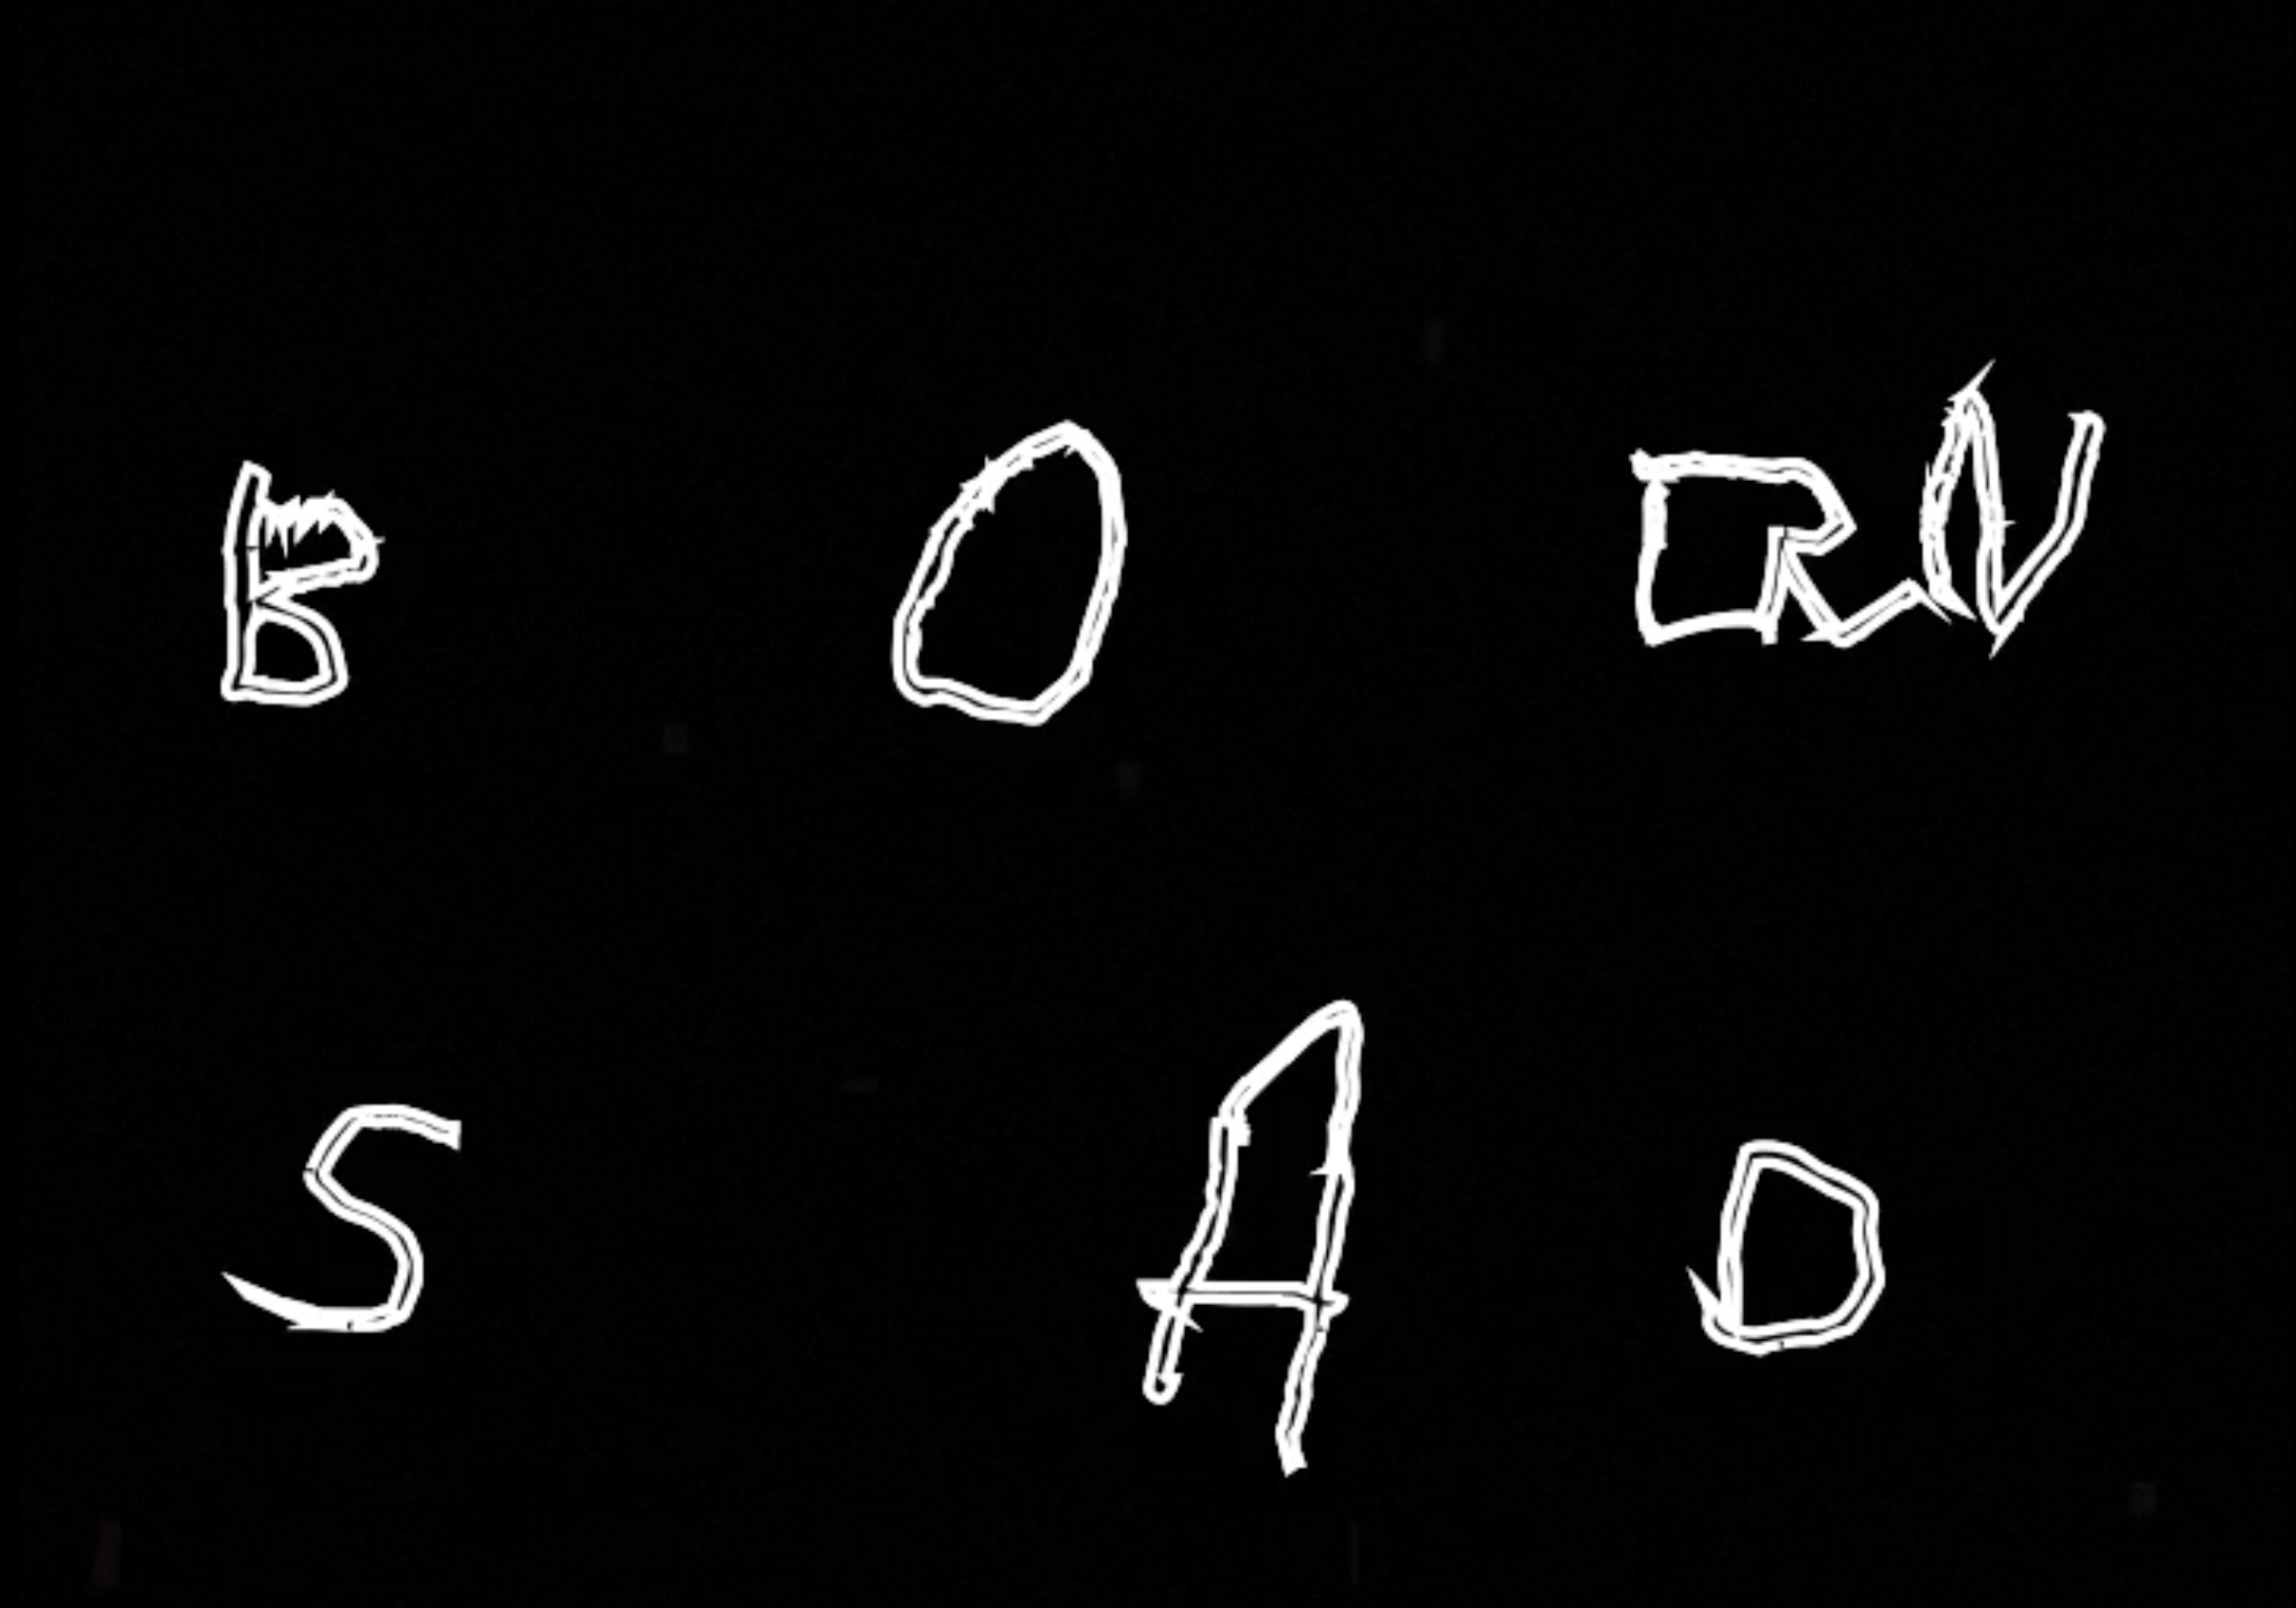 BORN
SAD